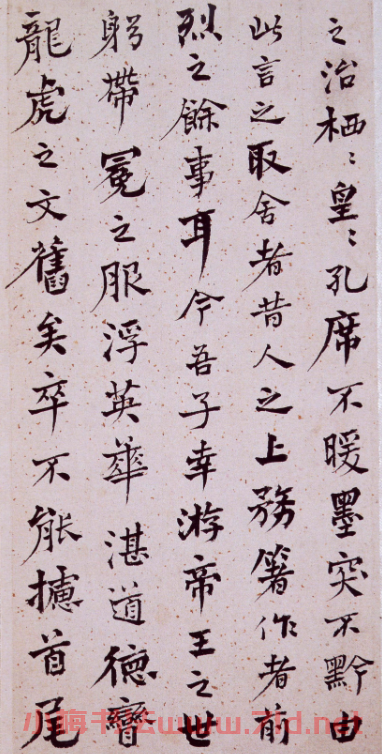 之治栖〻皇〻孔席不暖墨突不黔由
此言之取舍者昔人之上務著作者前
烈之餘事耳今吾子幸游帝王之世
躬帶冕之服浮英華湛道德矕
龍虎之文舊矣卒不能攄首尾
小晦书法www.7td.net